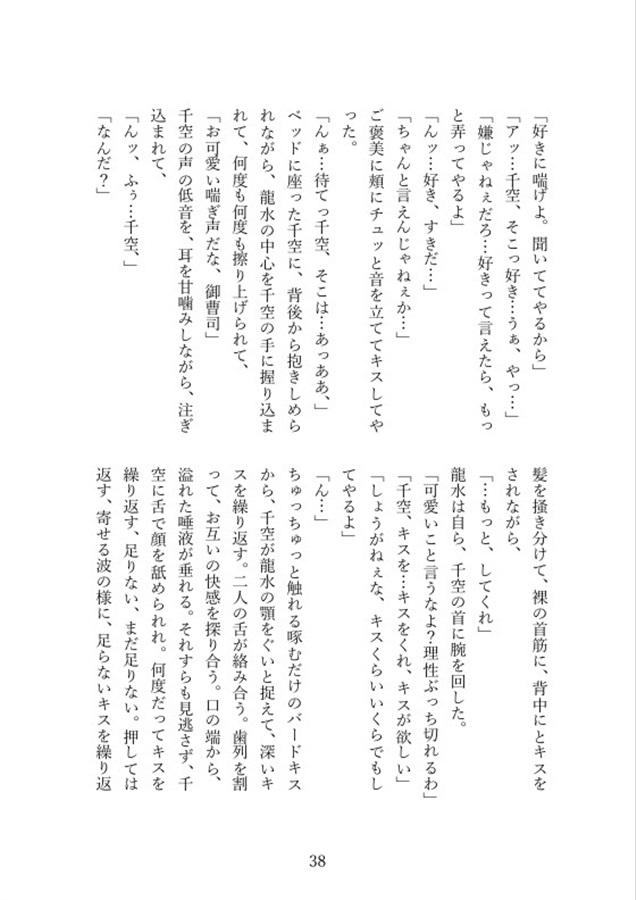 「好きに喘げよ。聞いててやるから」
「アッ…千空、そこっ好き…うぁ、やっ…」
「嫌じゃねぇだろ…好きって言えたら、もっ
と弄ってやるよ」
「んッ…好き、すきだ…」
「ちゃんと言えんじゃねぇか…」
ご褒美に頬にチュッと音を立ててキスしてや
った。
「んぁ…待てっ千空、そこは…あっああ、」
ベッドに座った千空に、背後から抱きしめら
れながら、龍水の中心を千空の手に握り込ま
れて、何度も何度も擦り上げられて、
「お可愛い喘ぎ声だな、御曹司」
千空の声の低音を、耳を甘噛みしながら、注ぎ
込まれて、
「んッ、ふぅ…千空、」
「なんだ？」
髪を掻き分けて、裸の首筋に、背中にとキスを
されながら、
「…もっと、してくれ」
龍水は自ら、千空の首に腕を回した。
「可愛いこと言うなよ？理性ぶっち切れるわ」
「千空、キスを…キスをくれ、キスが欲しい」
「しょうがねぇな、キスくらいいくらでもし
てやるよ」
「ん…」
ちゅっちゅっと触れる啄むだけのバードキス
から、千空が龍水の顎をぐいと捉えて、深いキ
スを繰り返す。二人の舌が絡み合う。歯列を割
って、お互いの快感を探り合う。口の端から、
溢れた唾液が垂れる。それすらも見逃さず、千
空に舌で顔を舐められれ。何度だってキスを
繰り返す、足りない、まだ足りない。押しては
返す、寄せる波の様に、足らないキスを繰り返
38